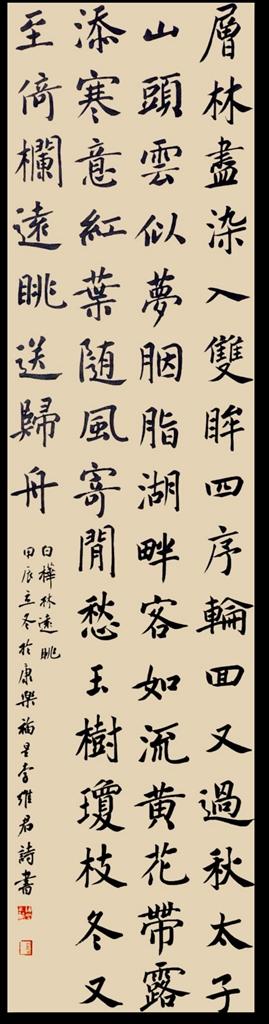 層林盡染入雙眸四序輪回又過秋太子
山頭雲似夢胭脂湖畔客如流黃花帶露
添寒意紅葉隨風寄閒愁玉樹瓊枝冬又
至倚欄遠眺送歸舟
白樺林遠眺
甲辰立冬於康樂福星李維君詩書